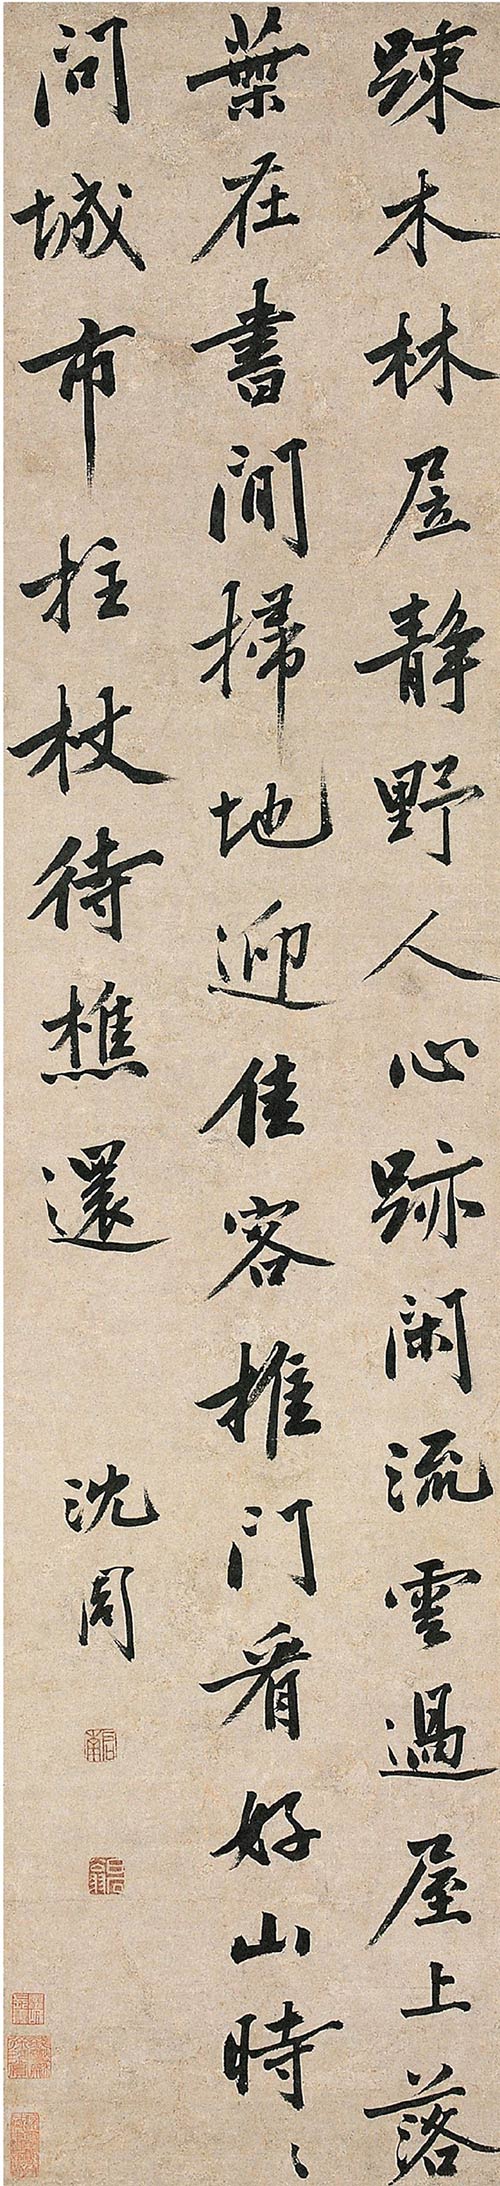 踈木林居静野人心跡閑流雲過屋上落
葉在書間掃地迎佳客推門看好山時〻
問城市拄杖待樵還
沈周
启南